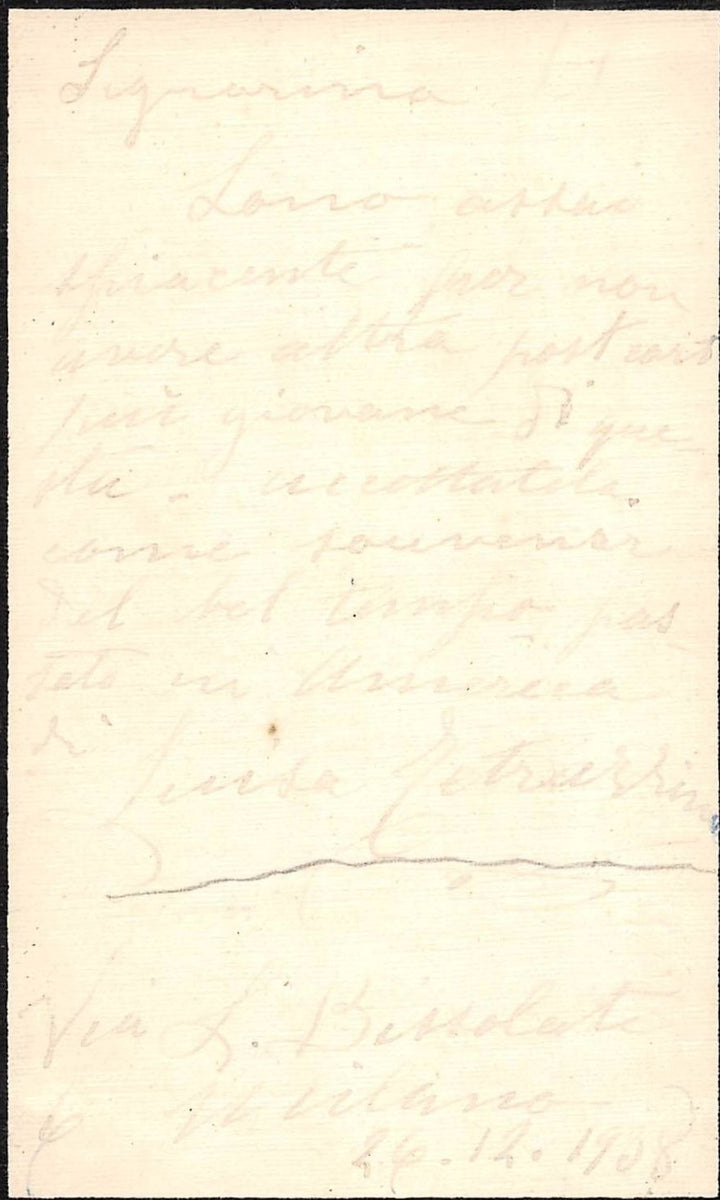 Signorina
Sono assai
spiacente per non
avere altra post cart
più giovane di que
sta - accettatela
come souvenir
del bel tempo pas
sato in America
di
Luisa Tetrazzini
Via L. Bissolati
6 Milano
26.12.1938